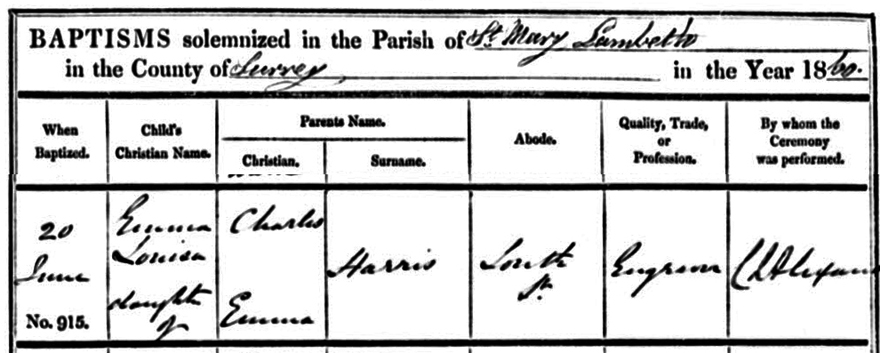 BAPTISMS solemnized in the Parish of St. Mary Lambeth
in the County of Surrey in the Year 1860.
When Baptized.
Child's Christian Name.
Parents Name.
Christian.
Surname.
Abode.
Quality, Trade, or Profession.
By whom the Ceremony was performed.
20
June
No. 915.
Emma
Louisa
daught
of
Charles
Emma
Harris
South
St.
Engraver